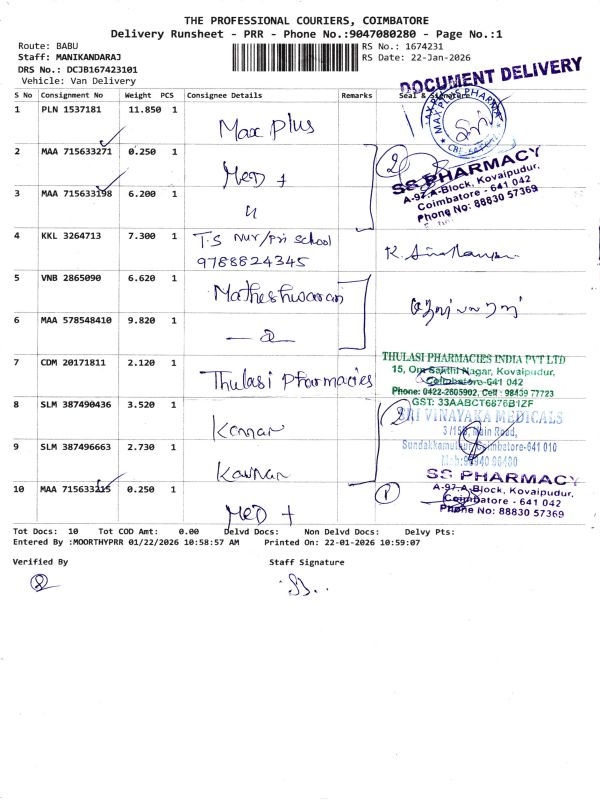 THE PROFESSIONAL COURIERS, COIMBATORE
Delivery Runsheet - PRR - Phone No.:9047080280 - Page No.:1
Route: BABU
RS No.: 1674231
Staff: MANIKANDARAJ
RS Date: 22-Jan-2026
DRS No.: DCJB167423101
Vehicle: Van Delivery
DOCUMENT DELIVERY
S No Consignment No Weight PCS Consignee Details Remarks Seal & Signature
1 PLN 1537181 11.850 1 Max Plus
MAX PLUS PHARMA
2 MAA 715633271 0.250 1 Med +
2
SS PHARMACY
A-97,A-Block, Kovaipudur,
Coimbatore - 641 042
Phone No: 88830 57369
3 MAA 715633198 6.200 1 "
4 KKL 3264713 7.300 1 T.S Nur/Pri School
9788824345
5 VNB 2865090 6.620 1 Matheshwaran
6 MAA 578548410 9.820 1
7 CDM 20171811 2.120 1 Thulasi Pharmacies
THULASI PHARMACIES INDIA PVT LTD
15, Om Sakthi Nagar, Kovaipudur,
Coimbatore-641 042
Phone: 0422-2605902, Cell : 98439 77723
GST: 33AABCT6876B1ZF
8 SLM 387490436 3.520 1 Kannan
2
SRI VINAYAKA MEDICALS
Main Road,
Coimbatore-641 010
9 SLM 387496663 2.730 1 Kannan
10 MAA 715633215 0.250 1 Med +
1
SS PHARMACY
A-97,A-Block, Kovaipudur,
Coimbatore - 641 042
Phone No: 88830 57369
Tot Docs: 10 Tot COD Amt: 0.00 Delvd Docs: Non Delvd Docs: Delvy Pts:
Entered By :MOORTHYPRR 01/22/2026 10:58:57 AM Printed On: 22-01-2026 10:59:07
Verified By
Staff Signature